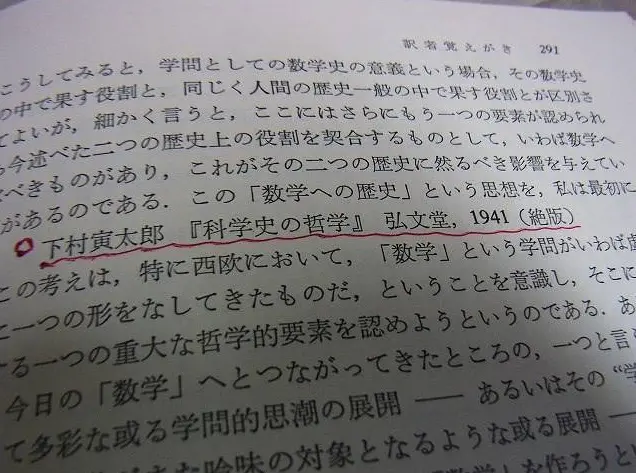 訳者覚えがき 291
こうしてみると，学問としての数学史の意義という場合，その数学史
の中で果す役割と，同じく人間の歴史一般の中で果す役割とが区別さ
てよいが，細かく言うと，ここにはさらにもう一つの要素が認められ
今述べた二つの歴史上の役割を契合するものとして，いわば数学へ
べきものがあり，これがその二つの歴史に然るべき影響を与えてい
があるのである．この「数学への歴史」という思想を，私は最初に
下村寅太郎 『科学史の哲学』 弘文堂，1941（絶版）
この考えは，特に西欧において，「数学」という学問がいわば
に一つの形をなしてきたものだ，ということを意識し，そこに
する一つの重大な哲学的要素を認めようというのである．あ
今日の「数学」へとつながってきたところの，一つと言
て多彩な或る学問的思潮の展開 —— あるいはその“学
吟味の対象となるような或る展開 ——
を作ろうと